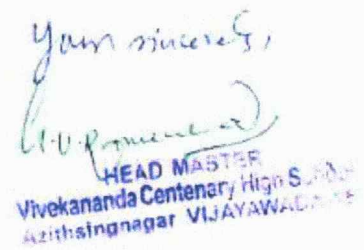 Yours sincerely,
HEAD MASTER
Vivekananda Centenary High School
Azithsingnagar VIJAYAWADA